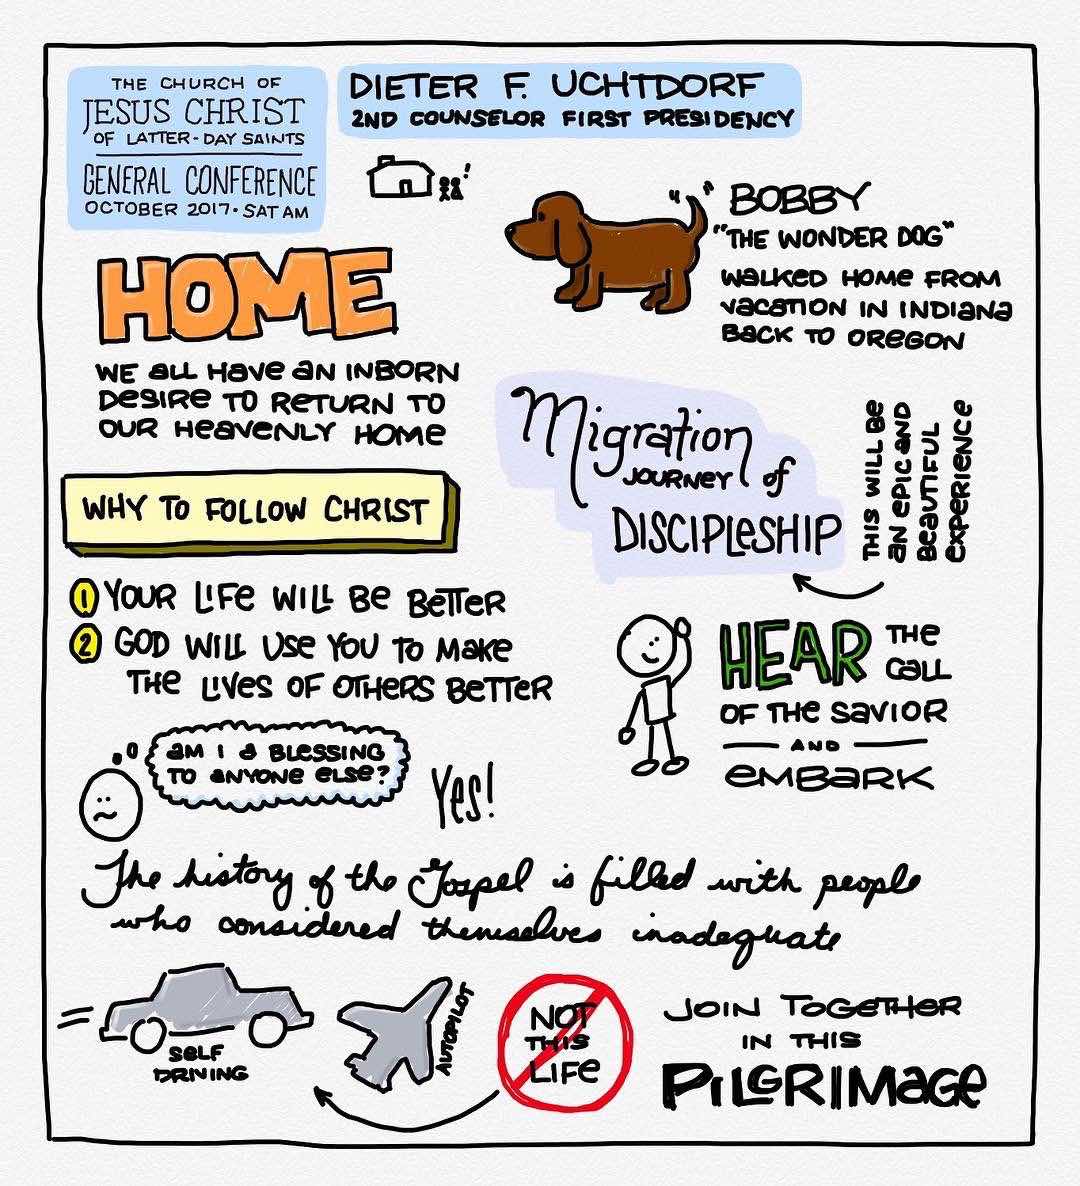 THE CHURCH OF
JESUS CHRIST
OF LATTER-DAY SAINTS
GENERAL CONFERENCE
OCTOBER 2017 • SAT AM
DIETER F. UCHTDORF
2ND COUNSELOR FIRST PRESIDENCY
BOBBY
"THE WONDER DOG"
WALKED HOME FROM
VACATION IN INDIANA
BACK TO OREGON
HOME
WE ALL HAVE AN INBORN
DESIRE TO RETURN TO
OUR HEAVENLY HOME
Migration
JOURNEY of
DISCIPLESHIP
THIS WILL BE
AN EPIC AND
BEAUTIFUL
EXPERIENCE
WHY TO FOLLOW CHRIST
1 YOUR LIFE WILL BE BETTER
2 GOD WILL USE YOU TO MAKE
THE LIVES OF OTHERS BETTER
HEAR THE
CALL
OF THE SAVIOR
AND
EMBARK
AM I A BLESSING
TO ANYONE ELSE?
YES!
The history of the Gospel is filled with people
who considered themselves inadequate
SELF
DRIVING
AUTOPILOT
NOT
THIS
LIFE
JOIN TOGETHER
IN THIS
PILGRIMAGE